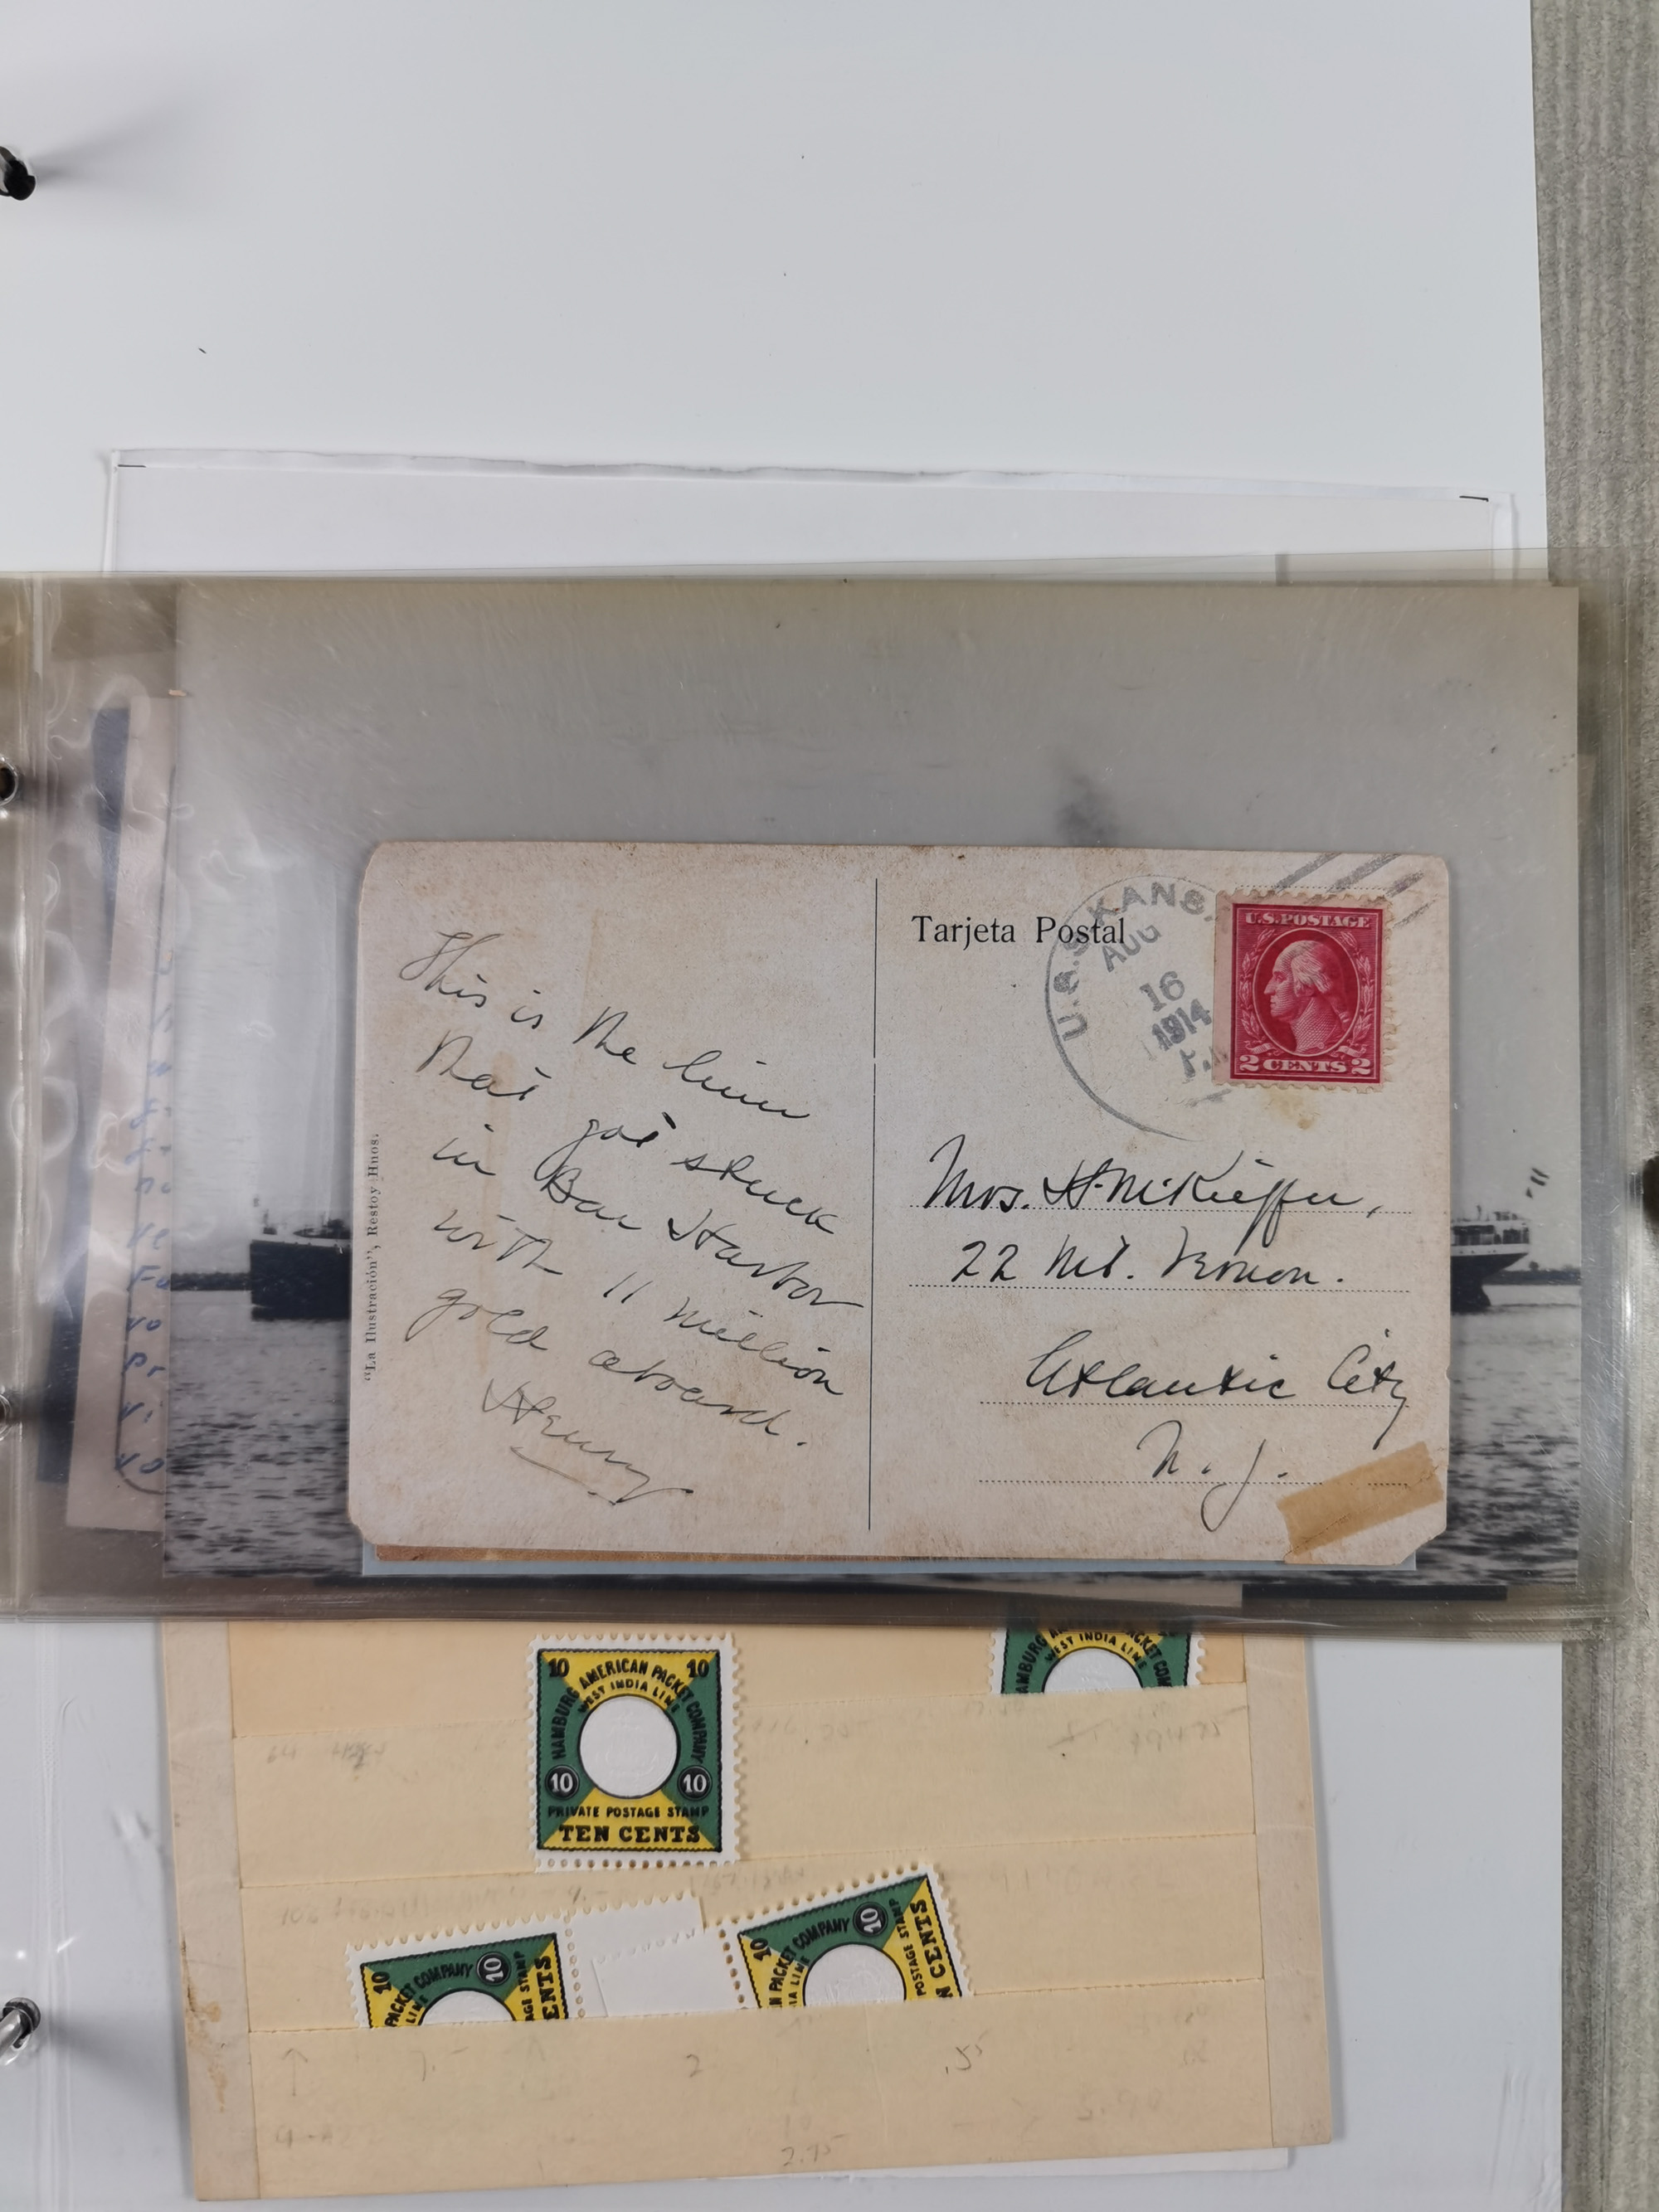 This is the liner
that got stuck
in Bar Harbor
with 11 million
gold aboard.
Henry
"La Ilustración", Restoy Hnos.
Tarjeta Postal
U.S.S. KANS.
AUG
16
1914
P.M
U.S. POSTAGE
2 CENTS 2
Mrs. H. McKieffer,
22 Mt. Vernon.
Atlantic City
N. J.
10 10
HAMBURG AMERICAN PACKET COMPANY
WEST INDIA LINE
10 10
PRIVATE POSTAGE STAMP
TEN CENTS
HAMBURG ACKET COM
WEST INDIA LINE
10 PACKET COMPANY 10
LIN
AGE STAMP
ENTS
10 N PACKET COMPANY 10
IA LINE
POSTAGE STAMP
N CENTS
2
.55
2.75